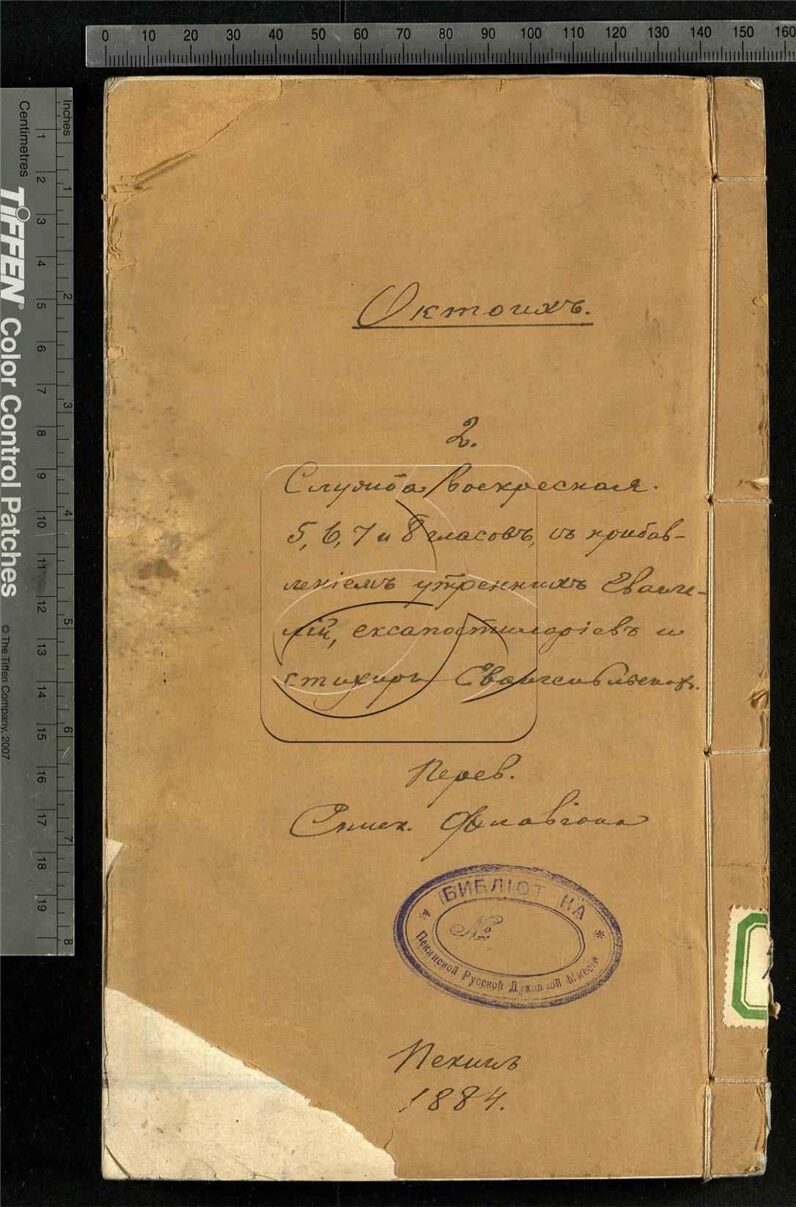 0 10 20 30 40 50 60 70 80 90 100 110 120 130 140 150 160
Inches
Centimetres
1 2 3 4 5 6 7 8
1 2 3 4 5 6 7 8 9 10 11 12 13 14 15 16 17 18 19
TIFFEN® Color Control Patches
© The Tiffen Company, 2007
Октоихъ.
2.
Служба Воскресная.
5, 6, 7 и 8 гласовъ, съ прибав-
леніемъ утреннихъ Еванге-
лій, ексапостиларіевъ и
стихиръ Евангельских.
Перев.
Еписк. Флавіана
БИБЛІОТ КА
№
Пекинской Русской Духовной Миссіи
Пекинъ
1884.